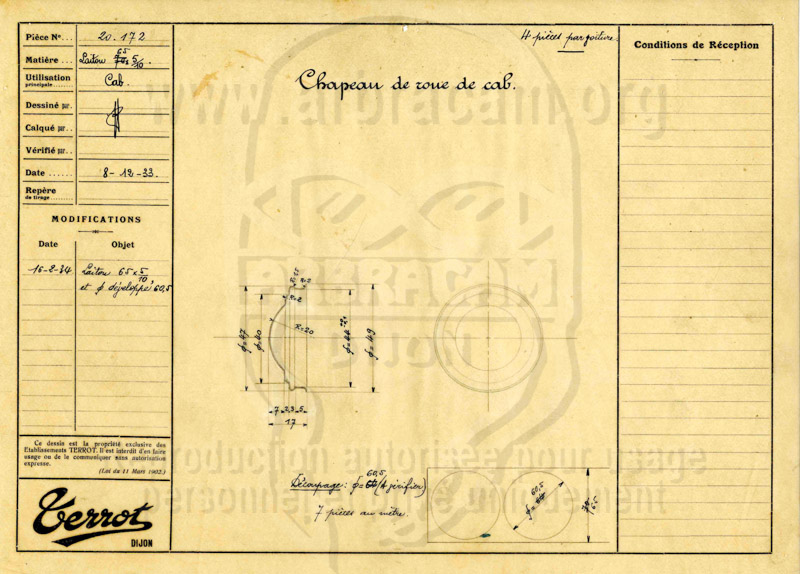 Pièce N°... 20.172
Matière... Laiton 65 5/10.
Utilisation principale....... Cab.
Dessiné par.
Calqué par..
Vérifié par..
Date ...... 8-12-33.
Repère de tirage.........
MODIFICATIONS
Date Objet
15-2-34 Laiton 65 x 5/10
et φ développé 60,5
Ce dessin est la propriété exclusive des
Etablissements TERROT. Il est interdit d'en faire
usage ou de le communiquer sans autorisation
expresse.
(Loi du 11 Mars 1902.)
Terrot
DIJON
4 pièces par voiture.
Chapeau de roue de cab.
R=2
R=2
R=20
φ=47
φ=40
φ=49
7 5
17
Découpage: φ= 60,5 (A vérifier)
7 pièces au mètre.
60,5
φ=
65
Conditions de Réception
www.arbracam.org
ARBRACAM
DIJON
reproduction autorisée à usage
personnel uniquement